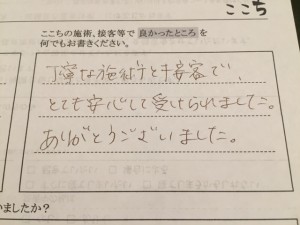 ここち
ここちの施術、接客等で良かったところを
何でもお書きください。
丁寧な施術と接客で、
とても安心して受けられました。
ありがとうございました。
いましたか?